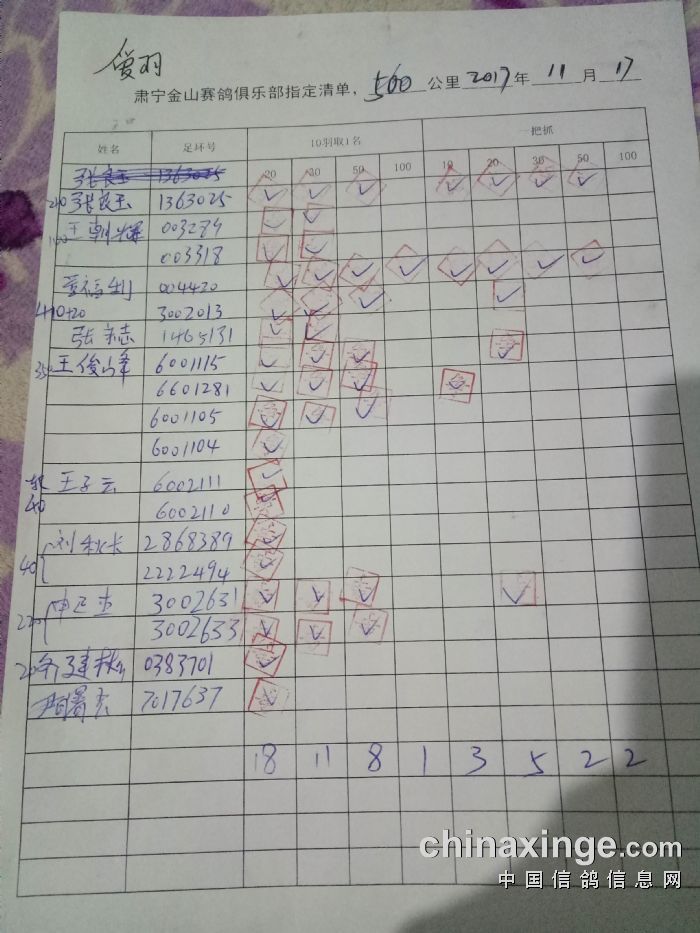 爱羽
肃宁金山赛鸽俱乐部指定清单, 500 公里 2017 年 11 月 17
姓名 足环号 10羽取1名 一把抓
20 30 50 100 10 20 30 50 100
张良玉 1363025
240 张良玉 1363025
王朝辉 003289
003318
004420
410+20 3002013
张志 1465131
350 王俊峰 6001115
6601281
6001105
6001104
王子云 6002111
40 6002110
刘秋长 2868389
40 2222494
3002631
3002633
20 0383701
7017637
18 11 8 1 3 5 2 2
chinaxinge.com
中国信鸽信息网